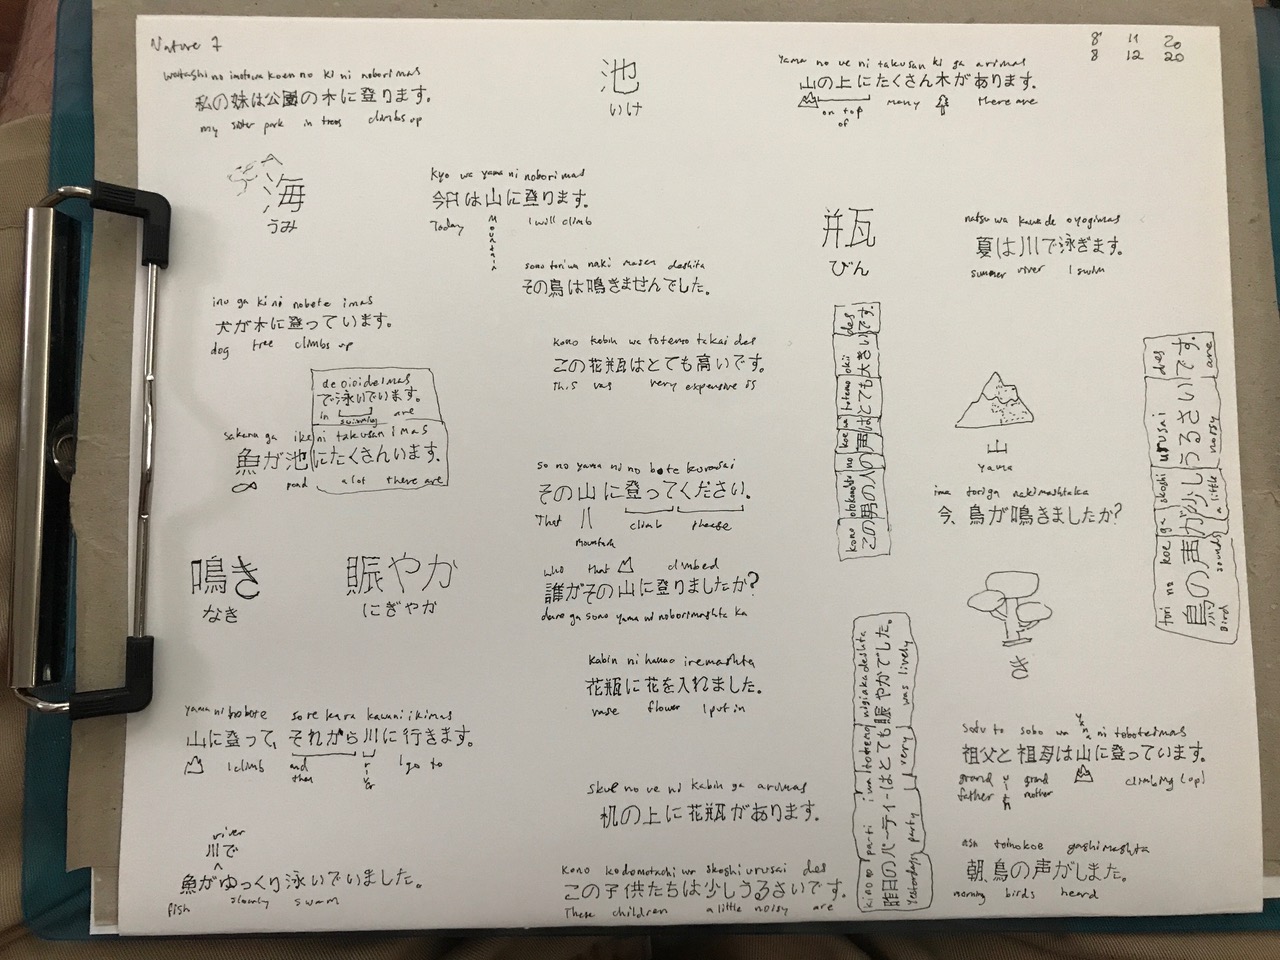 Nature 7
8 11 20
8 12 20
watashi no imotowa koen no ki ni noborimas
私の妹は公園の木に登ります。
my sister park in trees climbs up
池
いけ
yama no ue ni takusan ki ga arimas
山の上にたくさん木があります。
on top of many there are
海
うみ
kyo wa yama ni noborimas
今日は山に登ります。
Today Mountain I will climb
瓶
びん
natsu wa kawa de oyogimas
夏は川で泳ぎます。
summer river I swim
sono tori wa naki masen deshita
その鳥は鳴きませんでした。
inu ga ki ni nobote imas
犬が木に登っています。
dog tree climbs up
kono kabin wa totemo takai des
この花瓶はとても高いです。
this vas very expensive is
kono otokonohito no koe wa totemo okii des
この男の人の声はとても大きいです。
de oioideimas
で泳いでいます。
in swimming are
sakana ga ike ni takusan imas
魚が池にたくさんいます。
pond a lot there are
山
yama
tori no koe ga skoshi urusai des
鳥の声が少しうるさいです。
Bird sounds a little noisy are
so no yama ni no bote kudasai
その山に登ってください。
That mountain climb please
ima toriga nakimashtaka
今、鳥が鳴きましたか?
鳴き
なき
賑やか
にぎやか
who that climbed
誰がその山に登りましたか?
dare ga sono yama ni noborimashta ka
き
kabin ni hanao iremashta
花瓶に花を入れました。
vase flower I put in
kinoo no pa-ti wa totemo nigiaka deshta
昨日のパーティーはとても賑やかでした。
Yesterdays party very was lively
yama ni nobote sore kara kawani ikimas
山に登って、それから川に行きます。
I climb and then river I go to
sofu to sobo wa yama ni noboteimas
祖父と祖母は山に登っています。
grand father with grand mother climbing (up)
skue no ue ni kabin ga arimas
机の上に花瓶があります。
river
川で
魚がゆっくり泳いでいました。
fish slowly swam
kono kodomotachi wa skoshi urusai des
この子供たちは少しうるさいです。
These children a little noisy are
asa torinokoe gashimashta
朝、鳥の声がしました。
morning birds heard